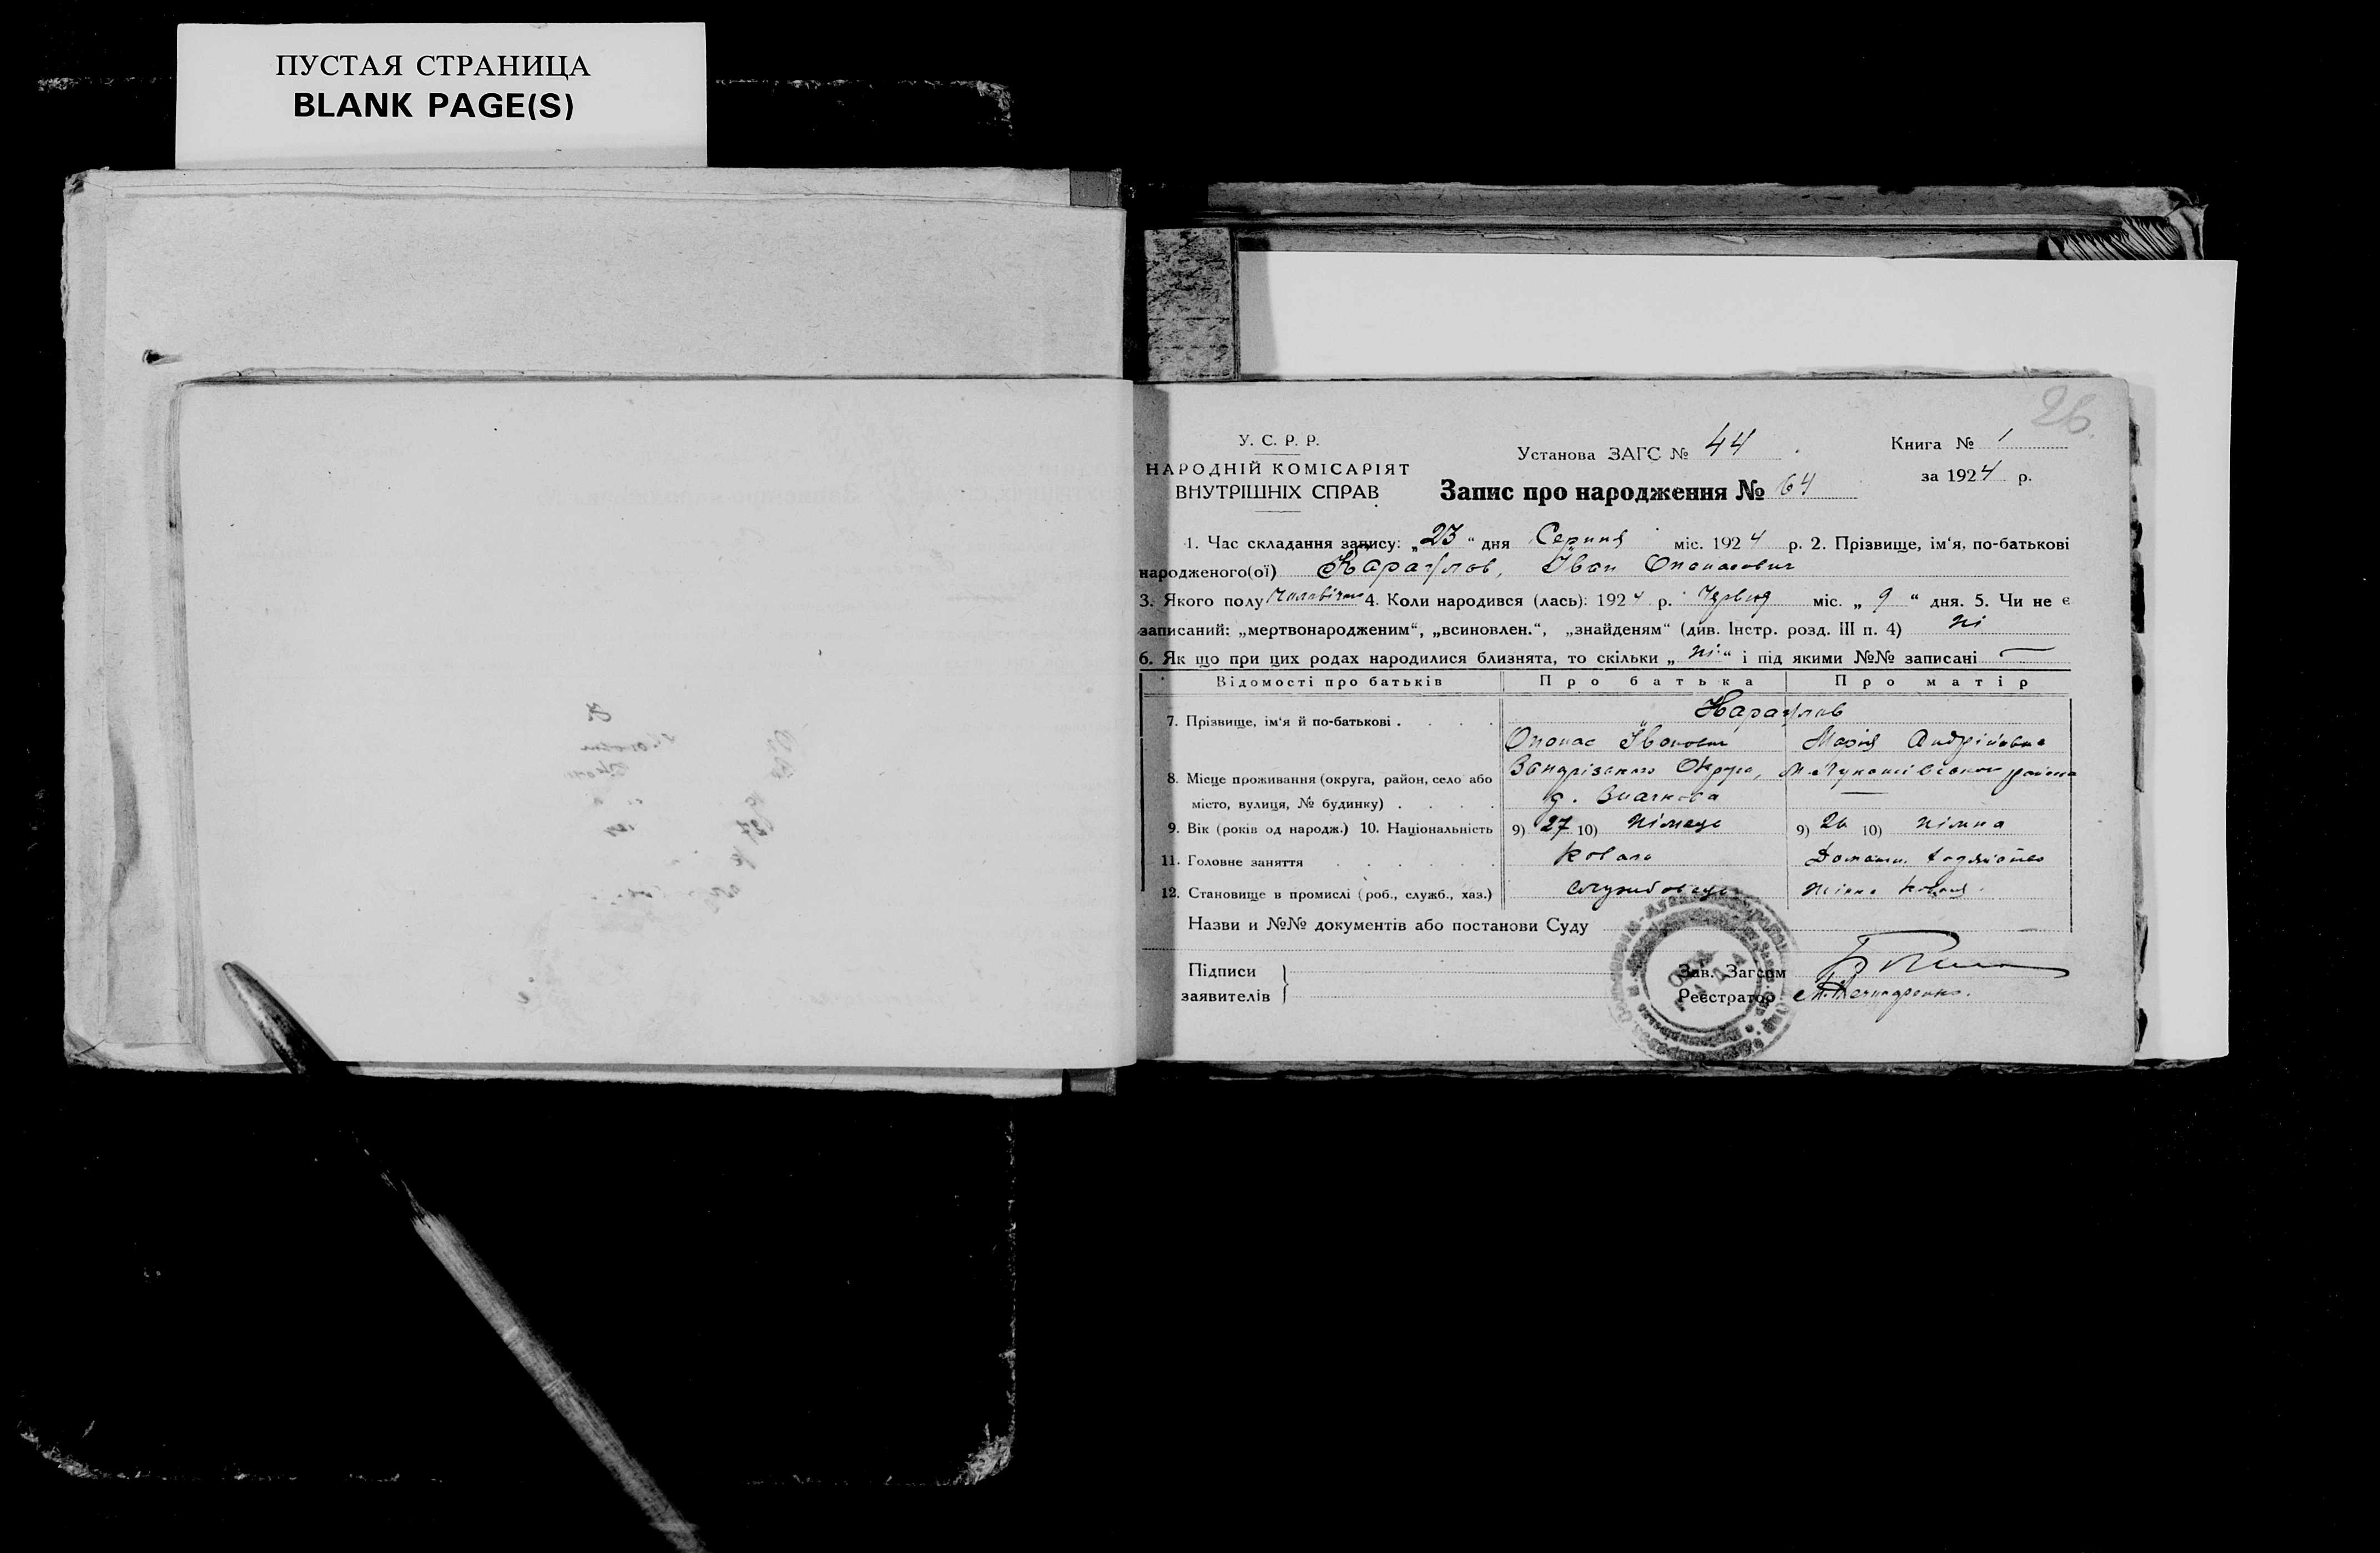 ПУСТАЯ СТРАНИЦА
BLANK PAGE(S)
26.
У. С. Р. Р.
НАРОДНІЙ КОМІСАРІЯТ
ВНУТРІШНІХ СПРАВ
Установа ЗАГС № 44
Запис про народження № 64
Книга № 1
за 1924 р.
1. Час складання запису: „23“ дня Серпня міс. 1924 р. 2. Прізвище, ім‘я, по-батькові
народженого(ої) Іван Опанасович
3. Якого полу 4. Коли народився (лась): 1924 р. міс. „9“ дня. 5. Чи не є
записаний: „мертвонародженим“, „всиновлен.“, „знайденям“ (див. Інстр. розд. III п. 4) ні
6. Як що при цих родах народилися близнята, то скільки „ні“ і під якими №№ записані —
Відомості про батьків Про батька Про матір
7. Прізвище, ім‘я й по-батькові
Опанас Іванович Марія Андріївна
8. Місце проживання (округа, район, село або
місто, вулиця, № будинку)
9. Вік (років од народж.) 10. Національність 9) 27 10) Німець 9) 26 10) Німка
11. Головне заняття Коваль
12. Становище в промислі (роб., служб., хаз.) Службовець Жінка Коваля
Назви и №№ документів або постанови Суду
Підписи
заявителів
Зав. Загсом
Реєстратор